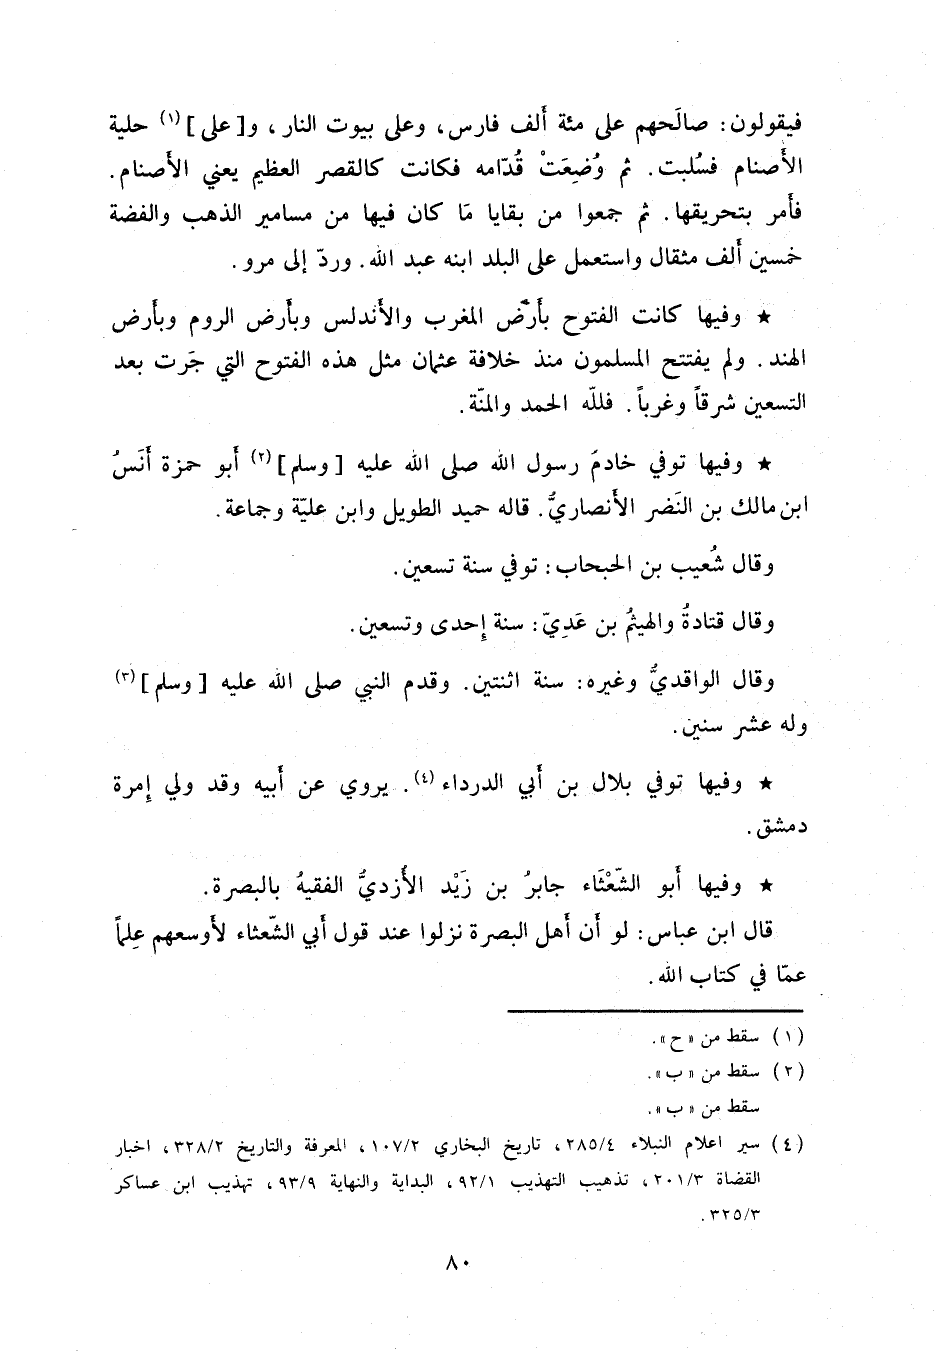 فيقولون: صالَحهم على مئة ألف فارس، وعلى بيوت النار، و[على](١) حلية
الأصنام فسُلبت. ثم وُضِعَتْ قُدّامه فكانت كالقصر العظيم يعني الأصنام.
فأمر بتحريقها. ثم جمعوا من بقايا مَا كان فيها من مسامير الذهب والفضة
خمسين ألف مثقال واستعمل على البلد ابنه عبد الله. وردّ إلى مرو.
★ وفيها كانت الفتوح بأرض المغرب والأندلس وبأرض الروم وبأرض
الهند. ولم يفتتح المسلمون منذ خلافة عثمان مثل هذه الفتوح التي جَرت بعد
التسعين شرقاً وغرباً. فللّه الحمد والمنّة.
★ وفيها توفي خادمَ رسول الله صلى الله عليه [وسلم](٢) أبو حمزة أَنَسُ
ابن مالك بن النَضر الأنصاريُّ. قاله حميد الطويل وابن عليّة وجماعة.
وقال شُعيب بن الحبحاب: توفي سنة تسعين.
وقال قتادةُ والهيثمُ بن عَدِيّ: سنة إحدى وتسعين.
وقال الواقديُّ وغيره: سنة اثنتين. وقدم النبي صلى الله عليه [وسلم](٣)
وله عشر سنين.
★ وفيها توفي بلال بن أبي الدرداء(٤). يروي عن أبيه وقد ولي إمرة
دمشق.
★ وفيها أبو الشّعْثَاء جابرُ بن زَيْد الأزديُّ الفقيهُ بالبصرة.
قال ابن عباس: لو أن أهل البصرة نزلوا عند قول أبي الشّعثاء لأوسعهم عِلماً
عمّا في كتاب الله.
(١) سقط من «ح».
(٢) سقط من «ب».
سقط من «ب».
(٤) سير اعلام النبلاء ٢٨٥/٤، تاريخ البخاري ١٠٧/٢، المعرفة والتاريخ ٣٢٨/٢، اخبار
القضاة ٢٠١/٣، تذهيب التهذيب ٩٢/١، البداية والنهاية ٩٣/٩، تهذيب ابن عساكر
٣٢٥/٣.
٨٠